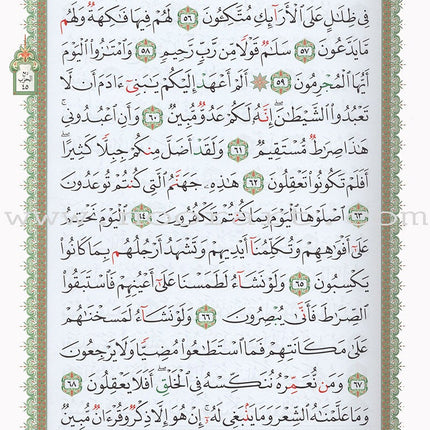 فِى ظِلَـٰلٍ عَلَى ٱلْأَرَآئِكِ مُتَّكِـُٔونَ ٥٦ لَهُمْ فِيهَا فَـٰكِهَةٌ وَلَهُم
مَّا يَدَّعُونَ ٥٧ سَلَـٰمٌ قَوْلًا مِّن رَّبٍّ رَّحِيمٍ ٥٨ وَٱمْتَـٰزُوا۟ ٱلْيَوْمَ
أَيُّهَا ٱلْمُجْرِمُونَ ٥٩ ۞ أَلَمْ أَعْهَدْ إِلَيْكُمْ يَـٰبَنِىٓ ءَادَمَ أَن لَّا
تَعْبُدُوا۟ ٱلشَّيْطَـٰنَ ۖ إِنَّهُۥ لَكُمْ عَدُوٌّ مُّبِينٌ ٦٠ وَأَنِ ٱعْبُدُونِى ۚ
هَـٰذَا صِرَٰطٌ مُّسْتَقِيمٌ ٦١ وَلَقَدْ أَضَلَّ مِنكُمْ جِبِلًّا كَثِيرًا ۖ
أَفَلَمْ تَكُونُوا۟ تَعْقِلُونَ ٦٢ هَـٰذِهِۦ جَهَنَّمُ ٱلَّتِى كُنتُمْ تُوعَدُونَ
٦٣ ٱصْلَوْهَا ٱلْيَوْمَ بِمَا كُنتُمْ تَكْفُرُونَ ٦٤ ٱلْيَوْمَ نَخْتِمُ
عَلَىٰٓ أَفْوَٰهِهِمْ وَتُكَلِّمُنَآ أَيْدِيهِمْ وَتَشْهَدُ أَرْجُلُهُم بِمَا كَانُوا۟
يَكْسِبُونَ ٦٥ وَلَوْ نَشَآءُ لَطَمَسْنَا عَلَىٰٓ أَعْيُنِهِمْ فَٱسْتَبَقُوا۟
ٱلصِّرَٰطَ فَأَنَّىٰ يُبْصِرُونَ ٦٦ وَلَوْ نَشَآءُ لَمَسَخْنَـٰهُمْ
عَلَىٰ مَكَانَتِهِمْ فَمَا ٱسْتَطَـٰعُوا۟ مُضِيًّا وَلَا يَرْجِعُونَ
٦٧ وَمَن نُّعَمِّرْهُ نُنَكِّسْهُ فِى ٱلْخَلْقِ ۖ أَفَلَا يَعْقِلُونَ ٦٨
وَمَا عَلَّمْنَـٰهُ ٱلشِّعْرَ وَمَا يَنۢبَغِى لَهُۥٓ ۚ إِنْ هُوَ إِلَّا ذِكْرٌ وَقُرْءَانٌ مُّبِينٌ